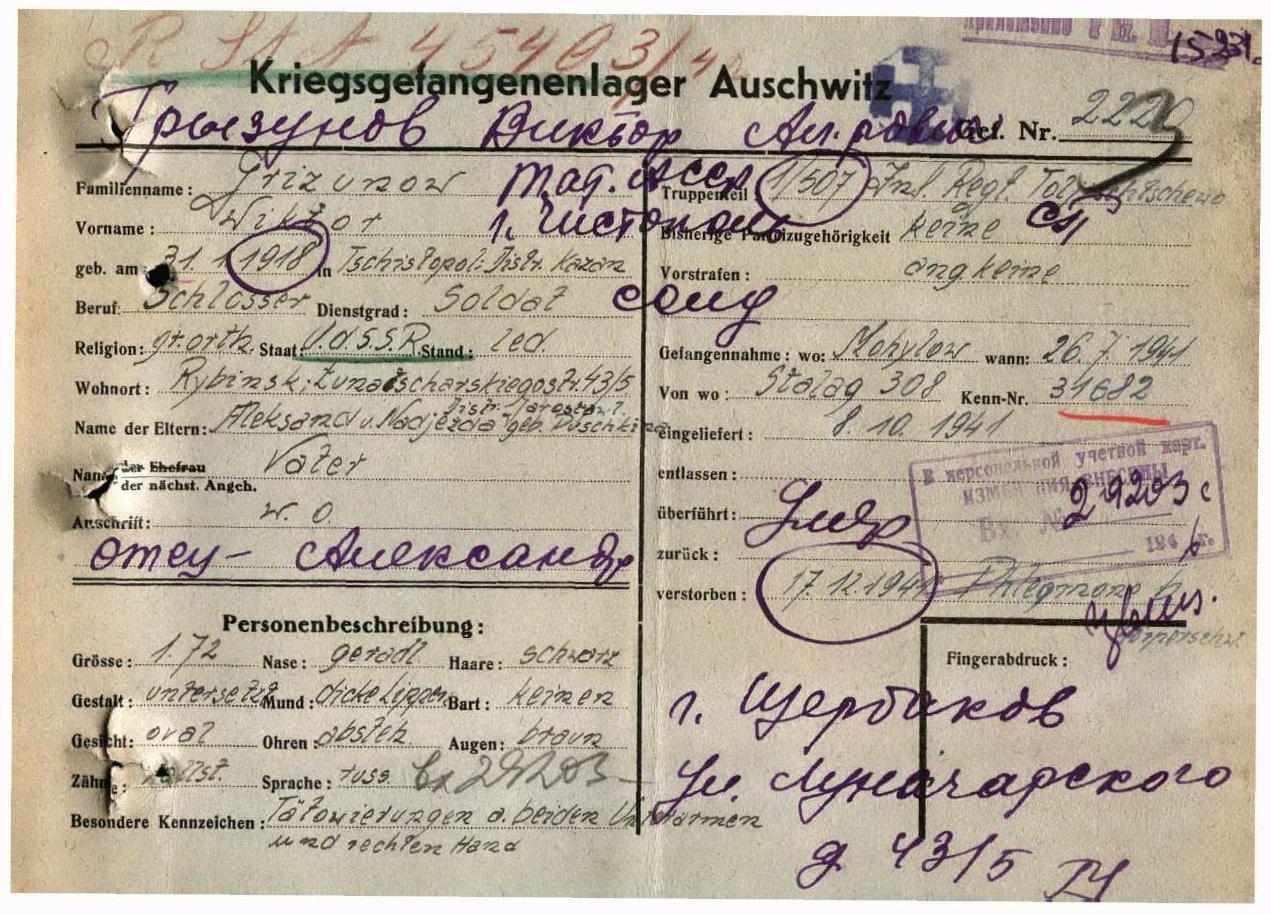 R St A 45403/42
15231
Kriegsgefangenenlager Auschwitz
Грызунов Виктор Ал-ровић
Gef. Nr. 2220
Familienname: Grizunow
Тат. АССР
Truppenteil 1/507 Inf. Regt.
Vorname: Wiktor
г. Чистополь
Bisherige Parteizugehörigkeit keine
сп
geb. am 31. 1. 1918 in Tschistopol. Distr. Kazan
Vorstrafen: angkeine
Beruf: Schlosser Dienstgrad: Soldat
солд
Religion: gr. orth. Staat: U.d.S.S.R. Stand: led.
Gefangennahme: wo: Mohylow wann: 26.7.1941
Wohnort: Rybinsk, Lunatscharskiegostr. 43/5
Distr. Jarostawl
Von wo: Stalag 308 Kenn-Nr. 31682
Name der Eltern: Aleksand u. Nadjezda geb. Puschkina
eingeliefert: 8. 10. 1941
Name der Ehefrau Vater
der nächst. Angeh.
entlassen:
В персональной учетной карт.
ИЗМЕНЕНИЯ ВНЕСЕНЫ
Вх. № 29203 с
194 г.
Anschrift: w. o.
überführt:
Умер
отец - Александр
zurück:
verstorben: 17.12.1941 Phlegmone
Körperschw.
Personenbeschreibung:
Grösse: 1.72 Nase: geradl Haare: schwarz
Fingerabdruck:
Gestalt: untersetzt Mund: dicke Lippen Bart: keinen
г. Щербаков
Gesicht: oval Ohren: absteh Augen: braun
Zähne: vollst. Sprache: russ.
Вх 29203
ул. Луначарского
Besondere Kennzeichen: Tätowierungen a. beiden Unterarmen
und rechten Hand
д. 43/5